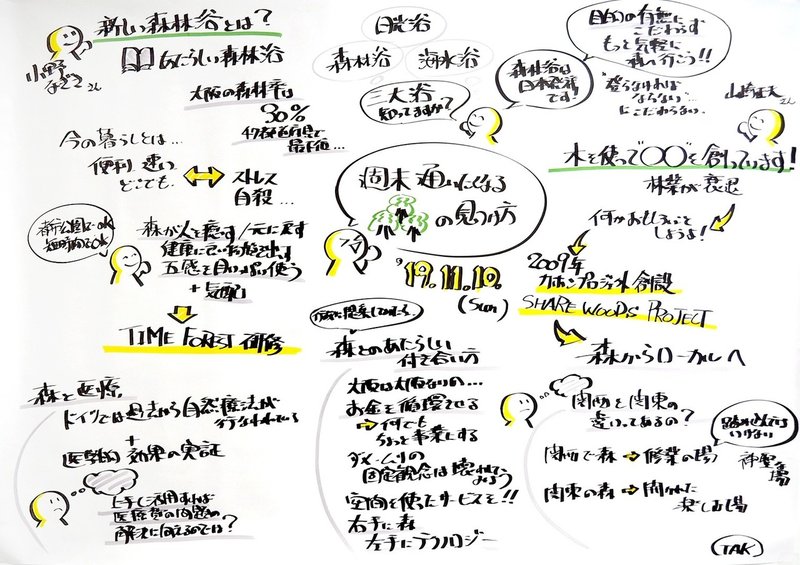 新しい森林浴とは?
小野
なぎさ
さん
あたらしい森林浴
大阪の森林率は
30%
47都道府県で
最下位…
今の暮らしとは…
便利 速い
どこでも
ストレス
自殺…
都市公園でもOK
短時間でもOK
森が人を癒す/元に戻す
五感を目いっぱい使う
+気配
TIME FOREST 研修
日光浴
森林浴
海水浴
三大浴
知ってますか?
森林浴は
日本発祥
です!
目的の有無に
こだわらず
もっと気軽に
森へ行こう!!
"登らなければ
ならない"
にこだわらない
山崎正夫
さん
週末 通いたくなる
の見つけ方
'19.11.10.
(Sun)
木を使って〇〇を創っています!
林業が衰退
何かおもしろいこと
しようよ!
2009年
カホンプロジェクト創設
SHARE WOODS PROJECT
森からローカルへ
森とのあたらしい
付き合い方
大阪は大阪なりの…
お金を循環させる
⇒何でも
ちょっと事業にする
ダメ・ムリの
固定観念は壊れてみよう
空間を使ったサービスを!!
右手に森
左手にテクノロジー
森と医療
ドイツでは過去から自然療法が
行なわれている
+
医学的 効果の実証
上手く活用すれば
医療費の問題の
解決に向えるのでは?
関西と関東の
違いってあるの?
踏み込んでは
いけない
関西で森⇒修業の場
神聖な
場
関東の森⇒開かれた
楽しむ場
TAK